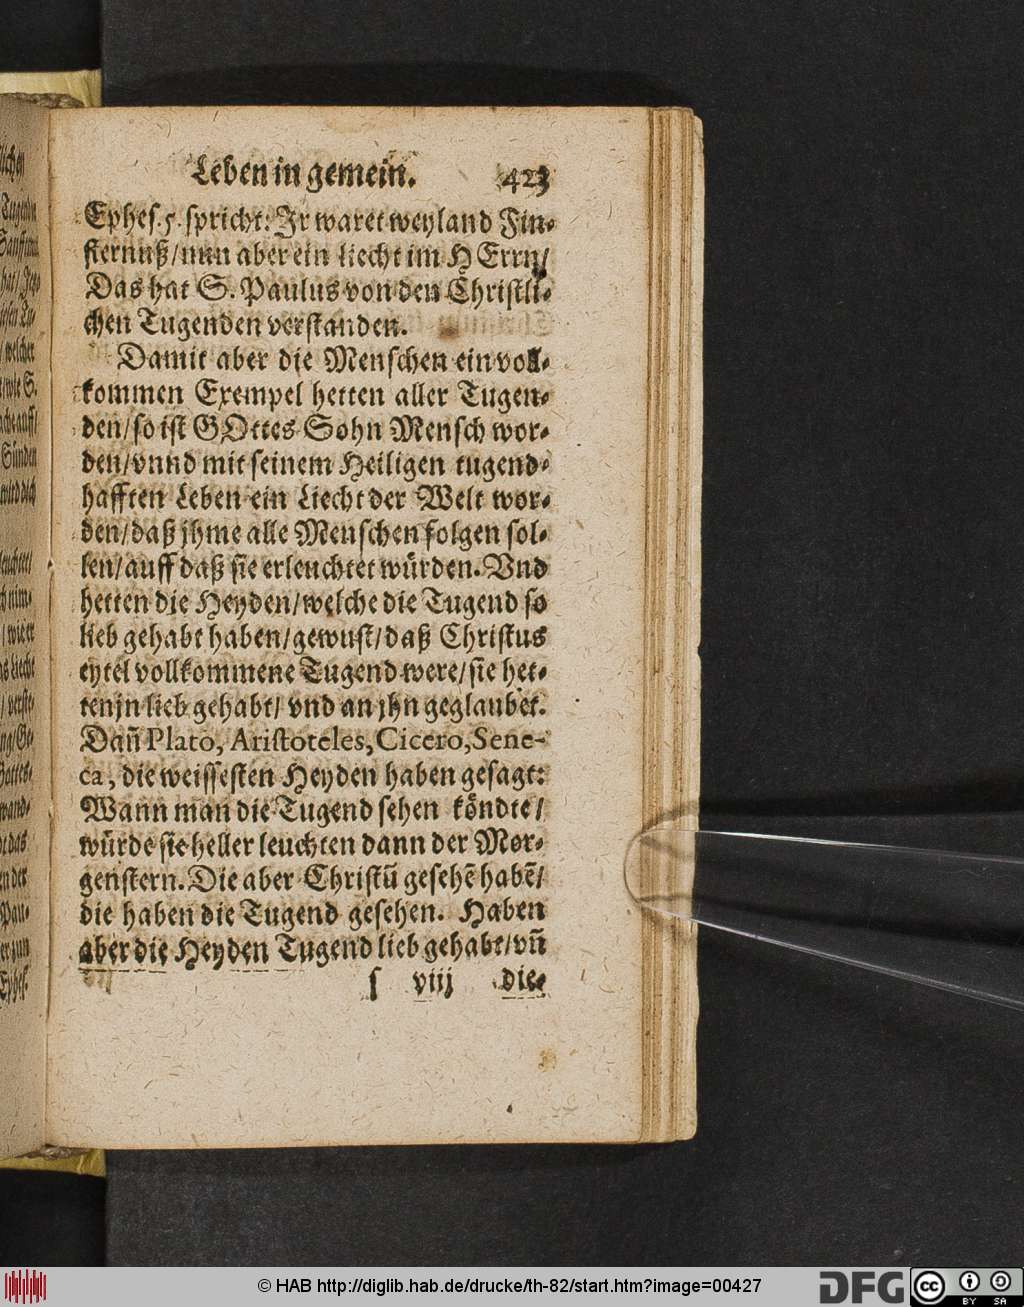 Leben in gemein. 423
Ephes. 5. spricht: Jr waret weyland Fin-
sternuß/nun aber ein liecht im HErrn/
Das hat S. Paulus von den Christli-
chen Tugenden verstanden.
Damit aber die Menschen ein voll-
kommen Exempel hetten aller Tugen-
den/so ist GOttes Sohn Mensch wor-
den/vnnd mit seinem Heiligen tugend-
hafften Leben ein Liecht der Welt wor-
den/daß jhme alle Menschen folgen sol-
len/auff daß sie erleuchtet würden. Vnd
hetten die Heyden/welche die Tugend so
lieb gehabt haben/gewust/daß Christus
eytel vollkommene Tugend were/sie het-
ten jn lieb gehabt/ vnd an jhn geglaubet.
Dañ Plato, Aristoteles, Cicero, Sene-
ca, die weissesten Heyden haben gesagt:
Wann man die Tugend sehen köndte/
würde sie heller leuchten dann der Mor-
genstern. Die aber Christũ gesehẽ habẽ/
die haben die Tugend gesehen. Haben
aber die Heyden Tugend lieb gehabt/vñ
ſ viij die-
© HAB http://diglib.hab.de/drucke/th-82/start.htm?image=00427
DFG
cc BY SA